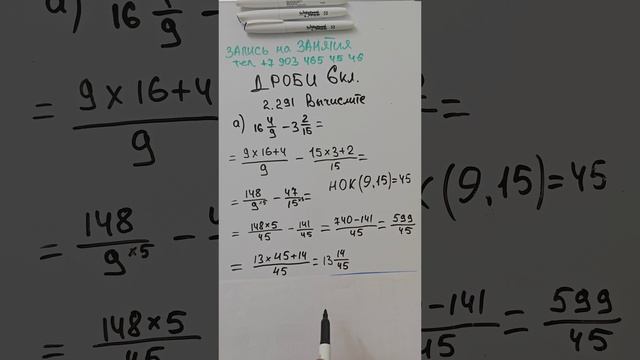 ЗАПИСЬ на ЗАНЯТИЯ
тел +7 903 465 45 45
ДРОБИ 6 кл.
2.291 Вычислите
а) 16 4/9 − 3 2/15 =
= (9×16+4)/9 − (15×3+2)/15 =
= 148/9 ×5 − 47/15 ×3 = НОК (9,15)=45
= (148×5)/45 − 141/45 = (740−141)/45 = 599/45
= (13×45+14)/45 = 13 14/45